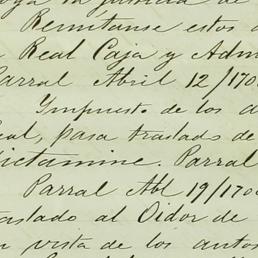 la justicia de
Remitanse estos
Real Caja y Adm
Parral Abril 12/170
Impuesto de los
pasa traslado de
dictamine. Parral
Parral Abl 19/170
traslado al Oidor de
vista de los autos